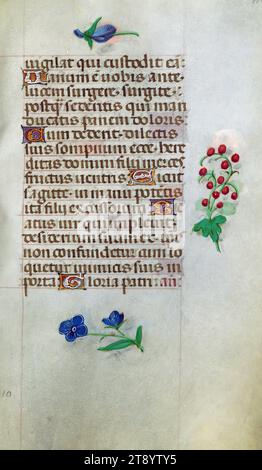 uigilat qui custodit eā:
Uanum ē uobis ante
lucem surgere: surgite
postq̄ sederitis qui man
ducatis panem doloris
Cum dederit dilectis
suis sompnium ecce here
ditas domini filii merces
fructus uentris Sicut
sagitte in manu potētis
ita filii excussorum Be
atus uir qui impleuit
desiderium suum ex
non confundetur cum lo
quetur inimicis suis in
porta Gloria patri: an